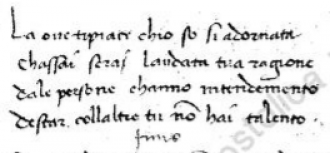 La oue ti piace chio so si adornata
Chassai serai laudata tua ragione
dale persone channo intendemento
destar collaltre tu nō hai talento
finis